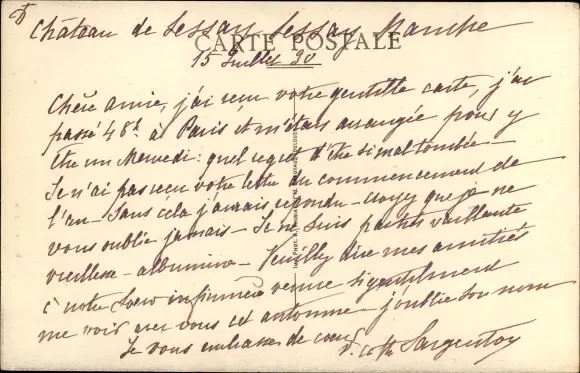 Château de Lessay Lessay Manche
CARTE POSTALE
15 Juillet 30
Chère amie, j'ai reçu votre gentille carte, j'ai
passé 48h à Paris et m'étais arrangée pour y
être un Mercredi : quel regret d'être si mal tombée -
Je n'ai pas reçu votre lettre du commencement de
l'an - Sans cela j'aurais répondu - croyez que je ne
vous oublie jamais - Je ne suis pas très vaillante
vieillesse - albumine - Veuillez dire mes amitiés
à votre Soeur infirmière venue si gentilment
me voir avec vous cet automne - j'oublie son nom
Je vous embrasse de coeur
Sargenton